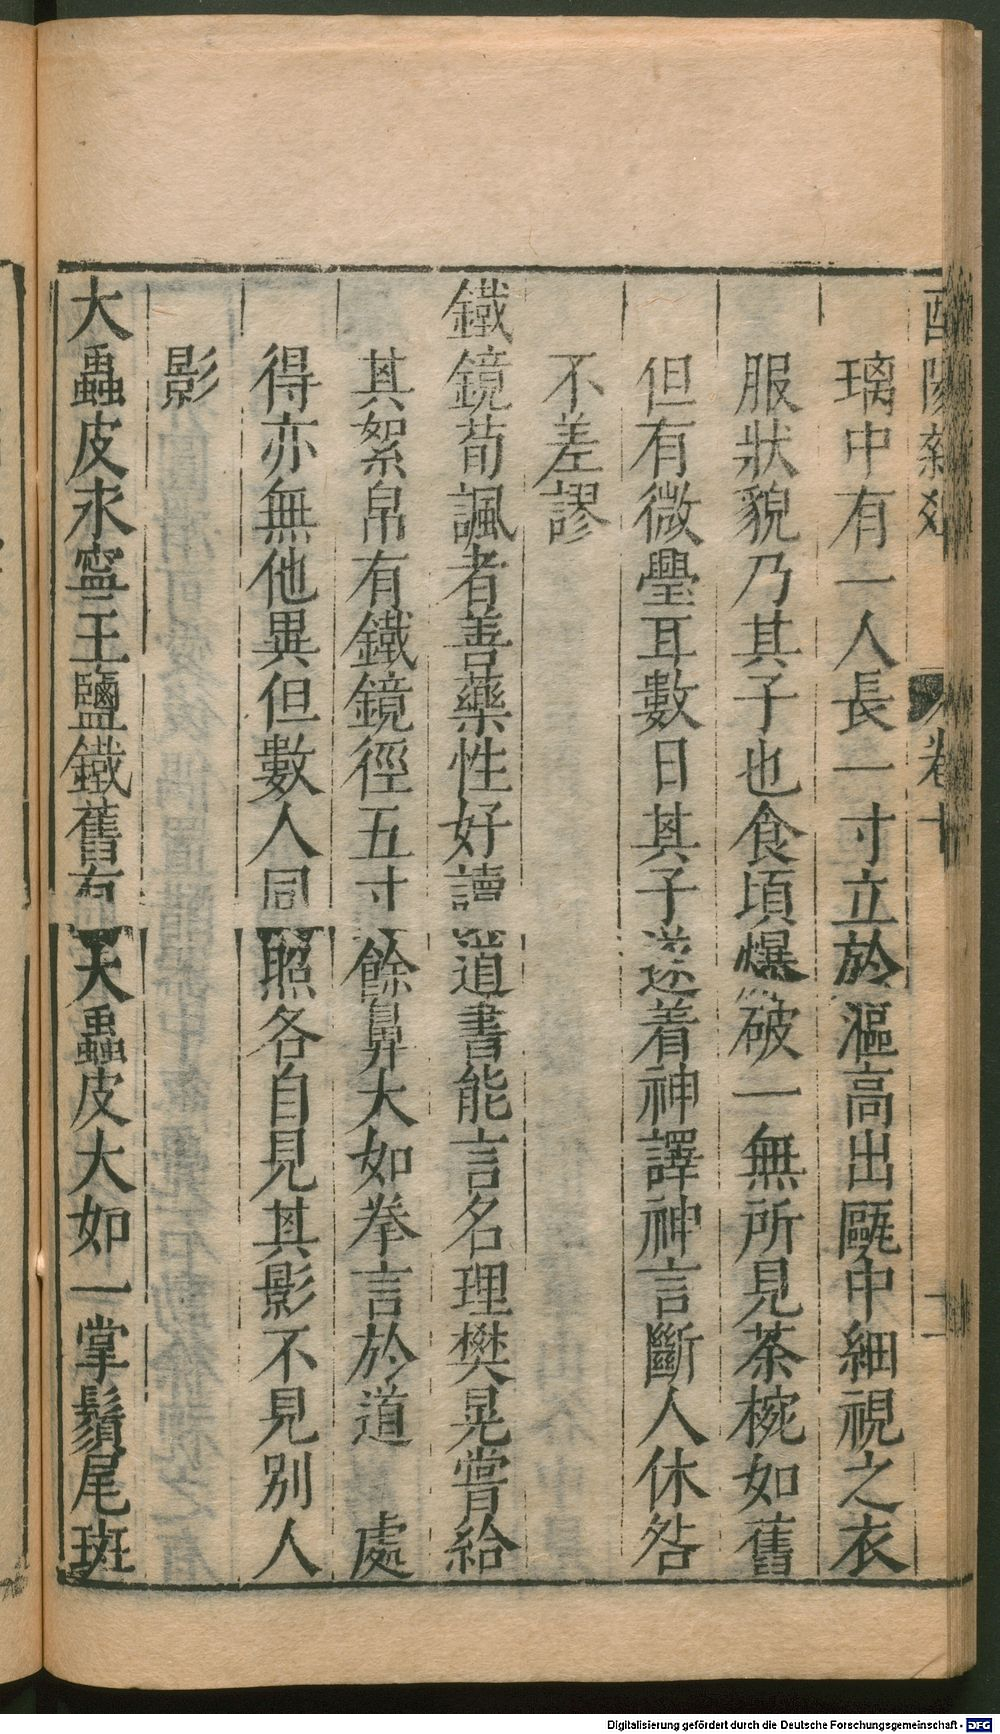 酉陽雜俎 卷十
璃中有一人長一寸立於漚高出甌中細視之衣
服狀貌乃其子也食頃爆破一無所見茶椀如舊
但有微璺耳數日其子遂着神譯神言斷人休咎
不差謬
鐵鏡荀諷者善藥性好讀道書能言名理樊晃嘗給
其絮帛有鐵鏡徑五寸餘鼻大如拳言於道 處
得亦無他異但數人同照各自見其影不見別人
影
大蟲皮永寧王鹽鐵舊有大蟲皮大如一掌鬚尾斑
Digitalisierung gefördert durch die Deutsche Forschungsgemeinschaft - DFG